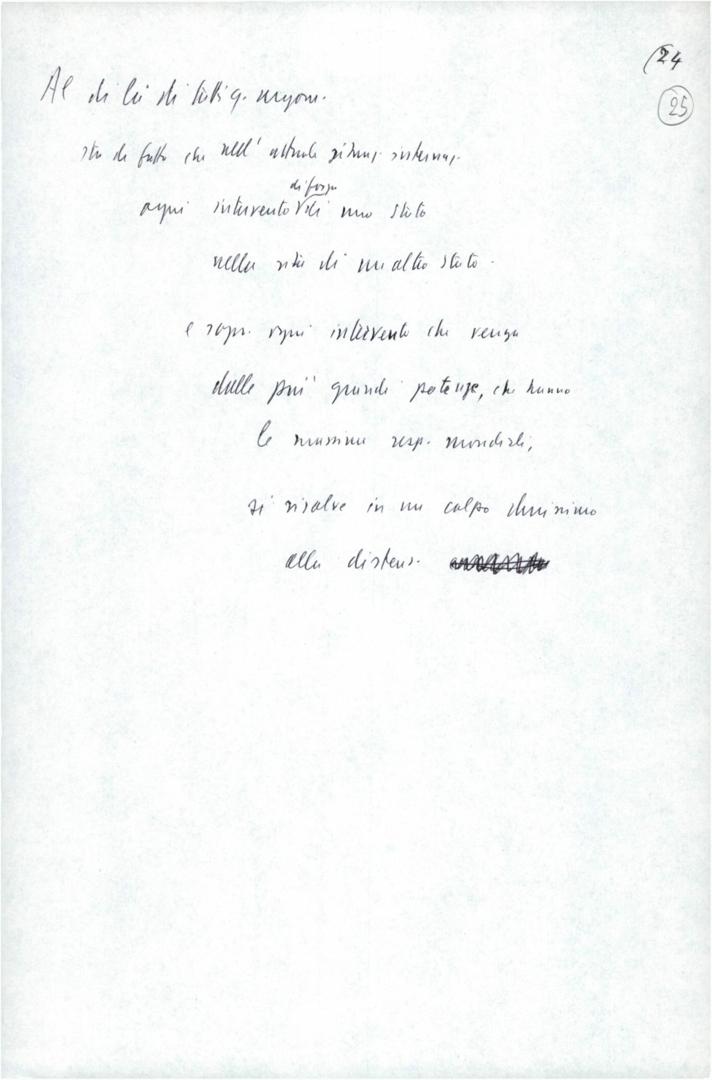 24
25
Al di là di tutti q. ragion.
sta di fatto che nell' attuale situaz. internaz.
di forza
ogni intervento di uno stato
nella vita di un altro stato.
e sopr. ogni intervento che venga
dalle più grandi potenze, che hanno
le massime resp. mondiali,
si risolve in un colpo durissimo
alla distens.